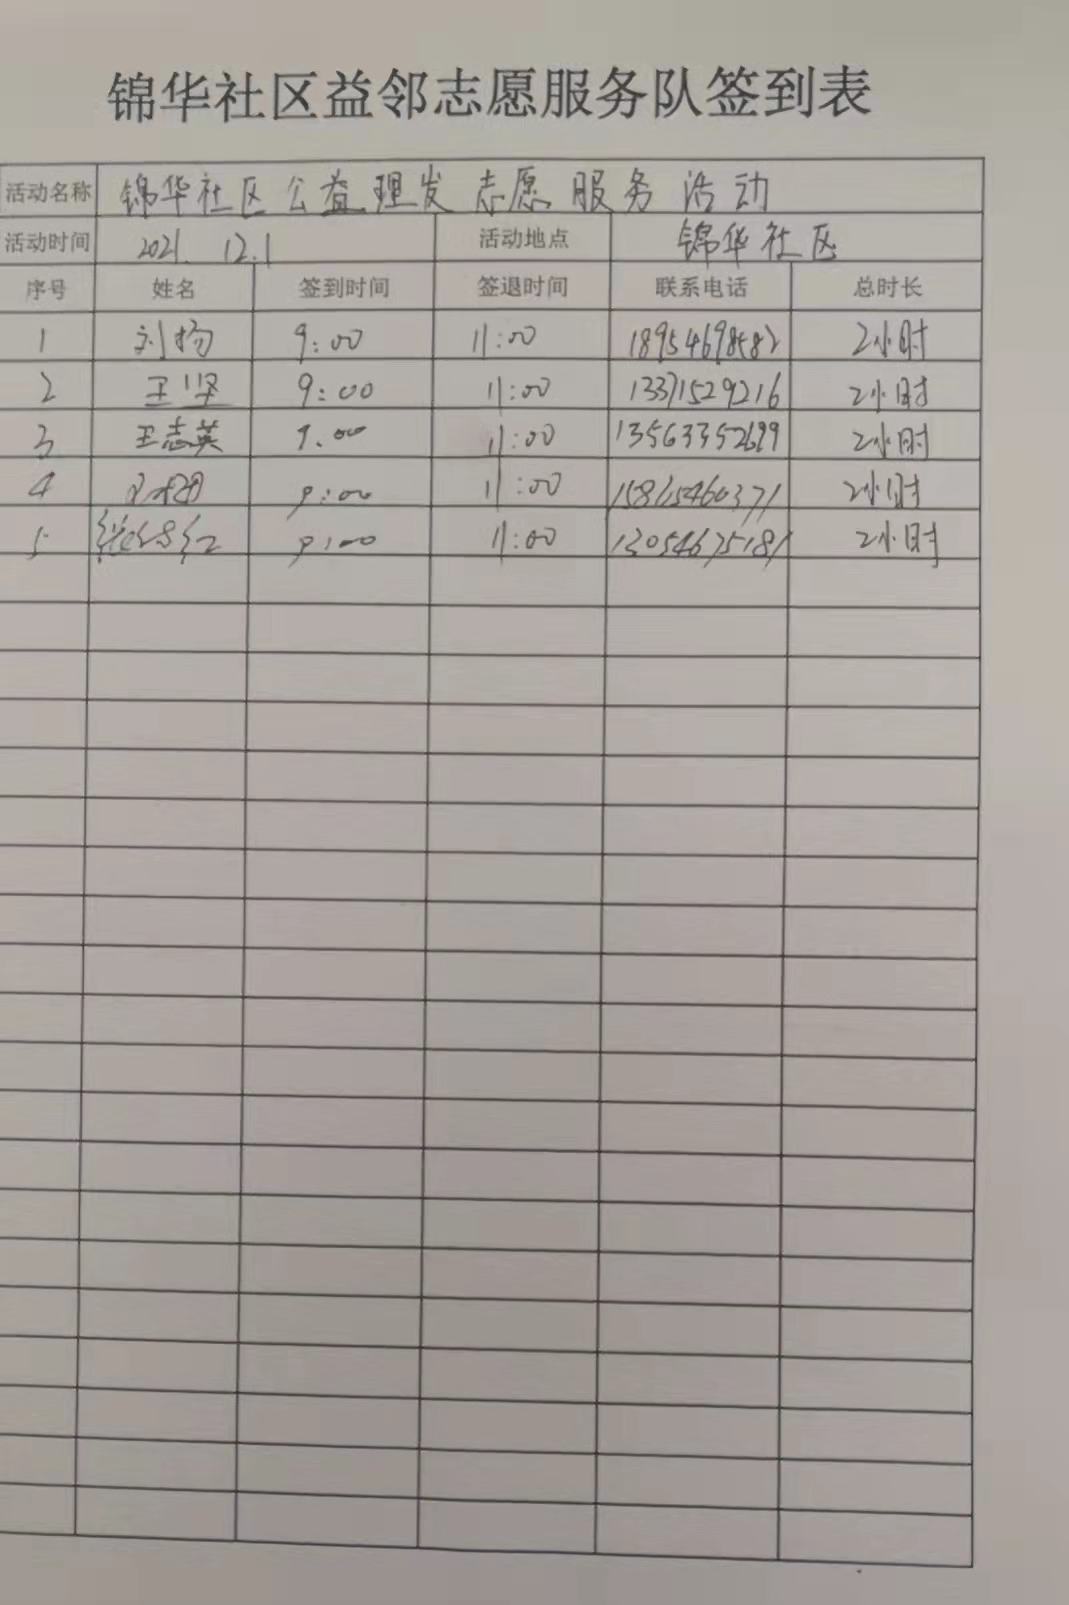 锦华社区益邻志愿服务队签到表
活动名称 锦华社区公益理发志愿服务活动
活动时间 2021.12.1 活动地点 锦华社区
序号 姓名 签到时间 签退时间 联系电话 总时长
1 刘杨 9:00 11:00 18954698582 2小时
2 王坚 9:00 11:00 13371529216 2小时
3 王志英 9:00 11:00 13563352699 2小时
4 9:00 11:00 15815460371 2小时
5 9:00 11:00 13054675181 2小时